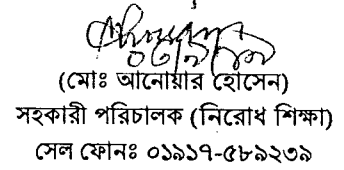 (মোঃ আনোয়ার হোসেন)
সহকারী পরিচালক (নিরোধ শিক্ষা)
সেল ফোনঃ ০১৯১৭-৫৮৯২৩৯